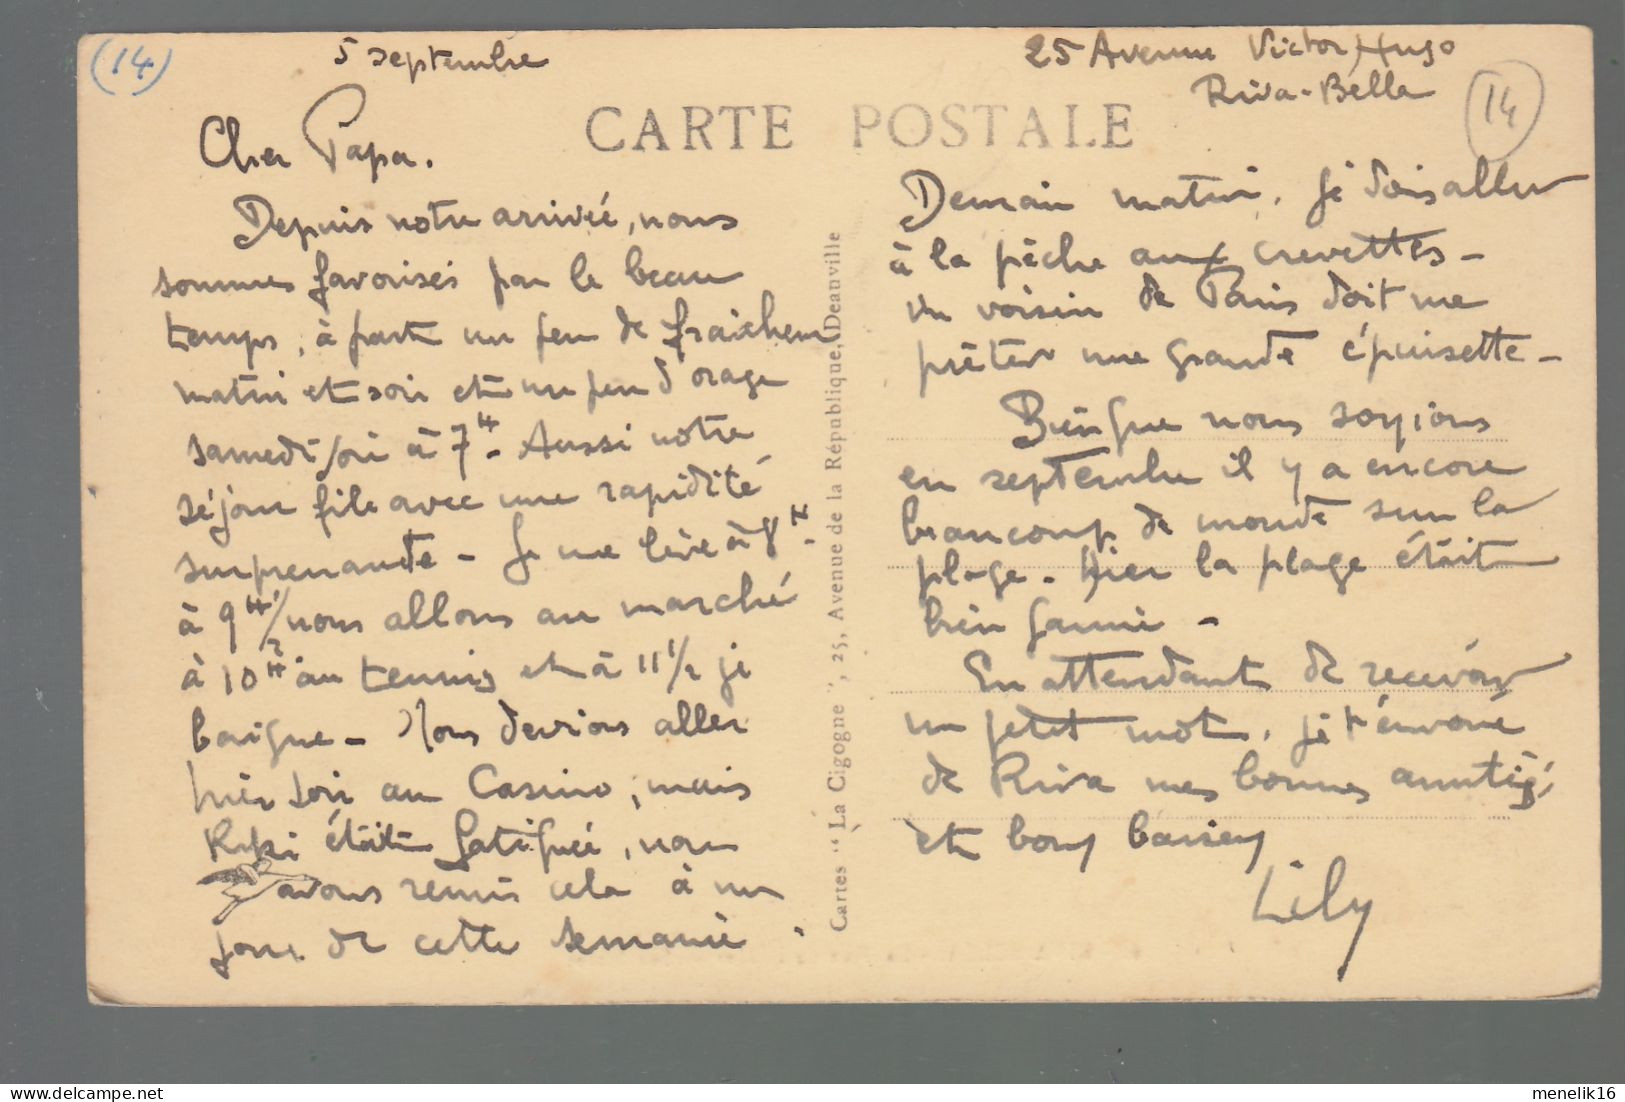 (14)
5 septembre
25 Avenue Victor Hugo
Riva-Belle
14
CARTE POSTALE
Cher Papa.
Depuis notre arrivée, nous
sommes favorisés par le beau
temps, à part un peu de fraicheur
matin et soir et un peu d'orage
samedi soir à 7H - Aussi notre
séjour file avec une rapidité
surprenante - Je me lève à 8H -
à 9H 1/2 nous allons au marché
à 10H au tennis et à 11 1/2 je
baigne - Nous devions aller
hier soir au Casino, mais
Kiki était fatiguée, nous
avons remis cela à un
jour de cette semaine.
Cartes "La Cigogne", 25, Avenue de la République, Deauville
Demain matin, je dois aller
à la pêche aux crevettes -
un voisin de Paris doit me
prêter une grande épuisette -
Bien que nous soyions
en septembre il y a encore
beaucoup de monde sur la
plage - Hier la plage était
bien garnie -
En attendant de recevoir
un petit mot, je t'envoie
de Riva mes bonnes amitiés,
et bons baisers
Lily
menelik16
delcampe.net